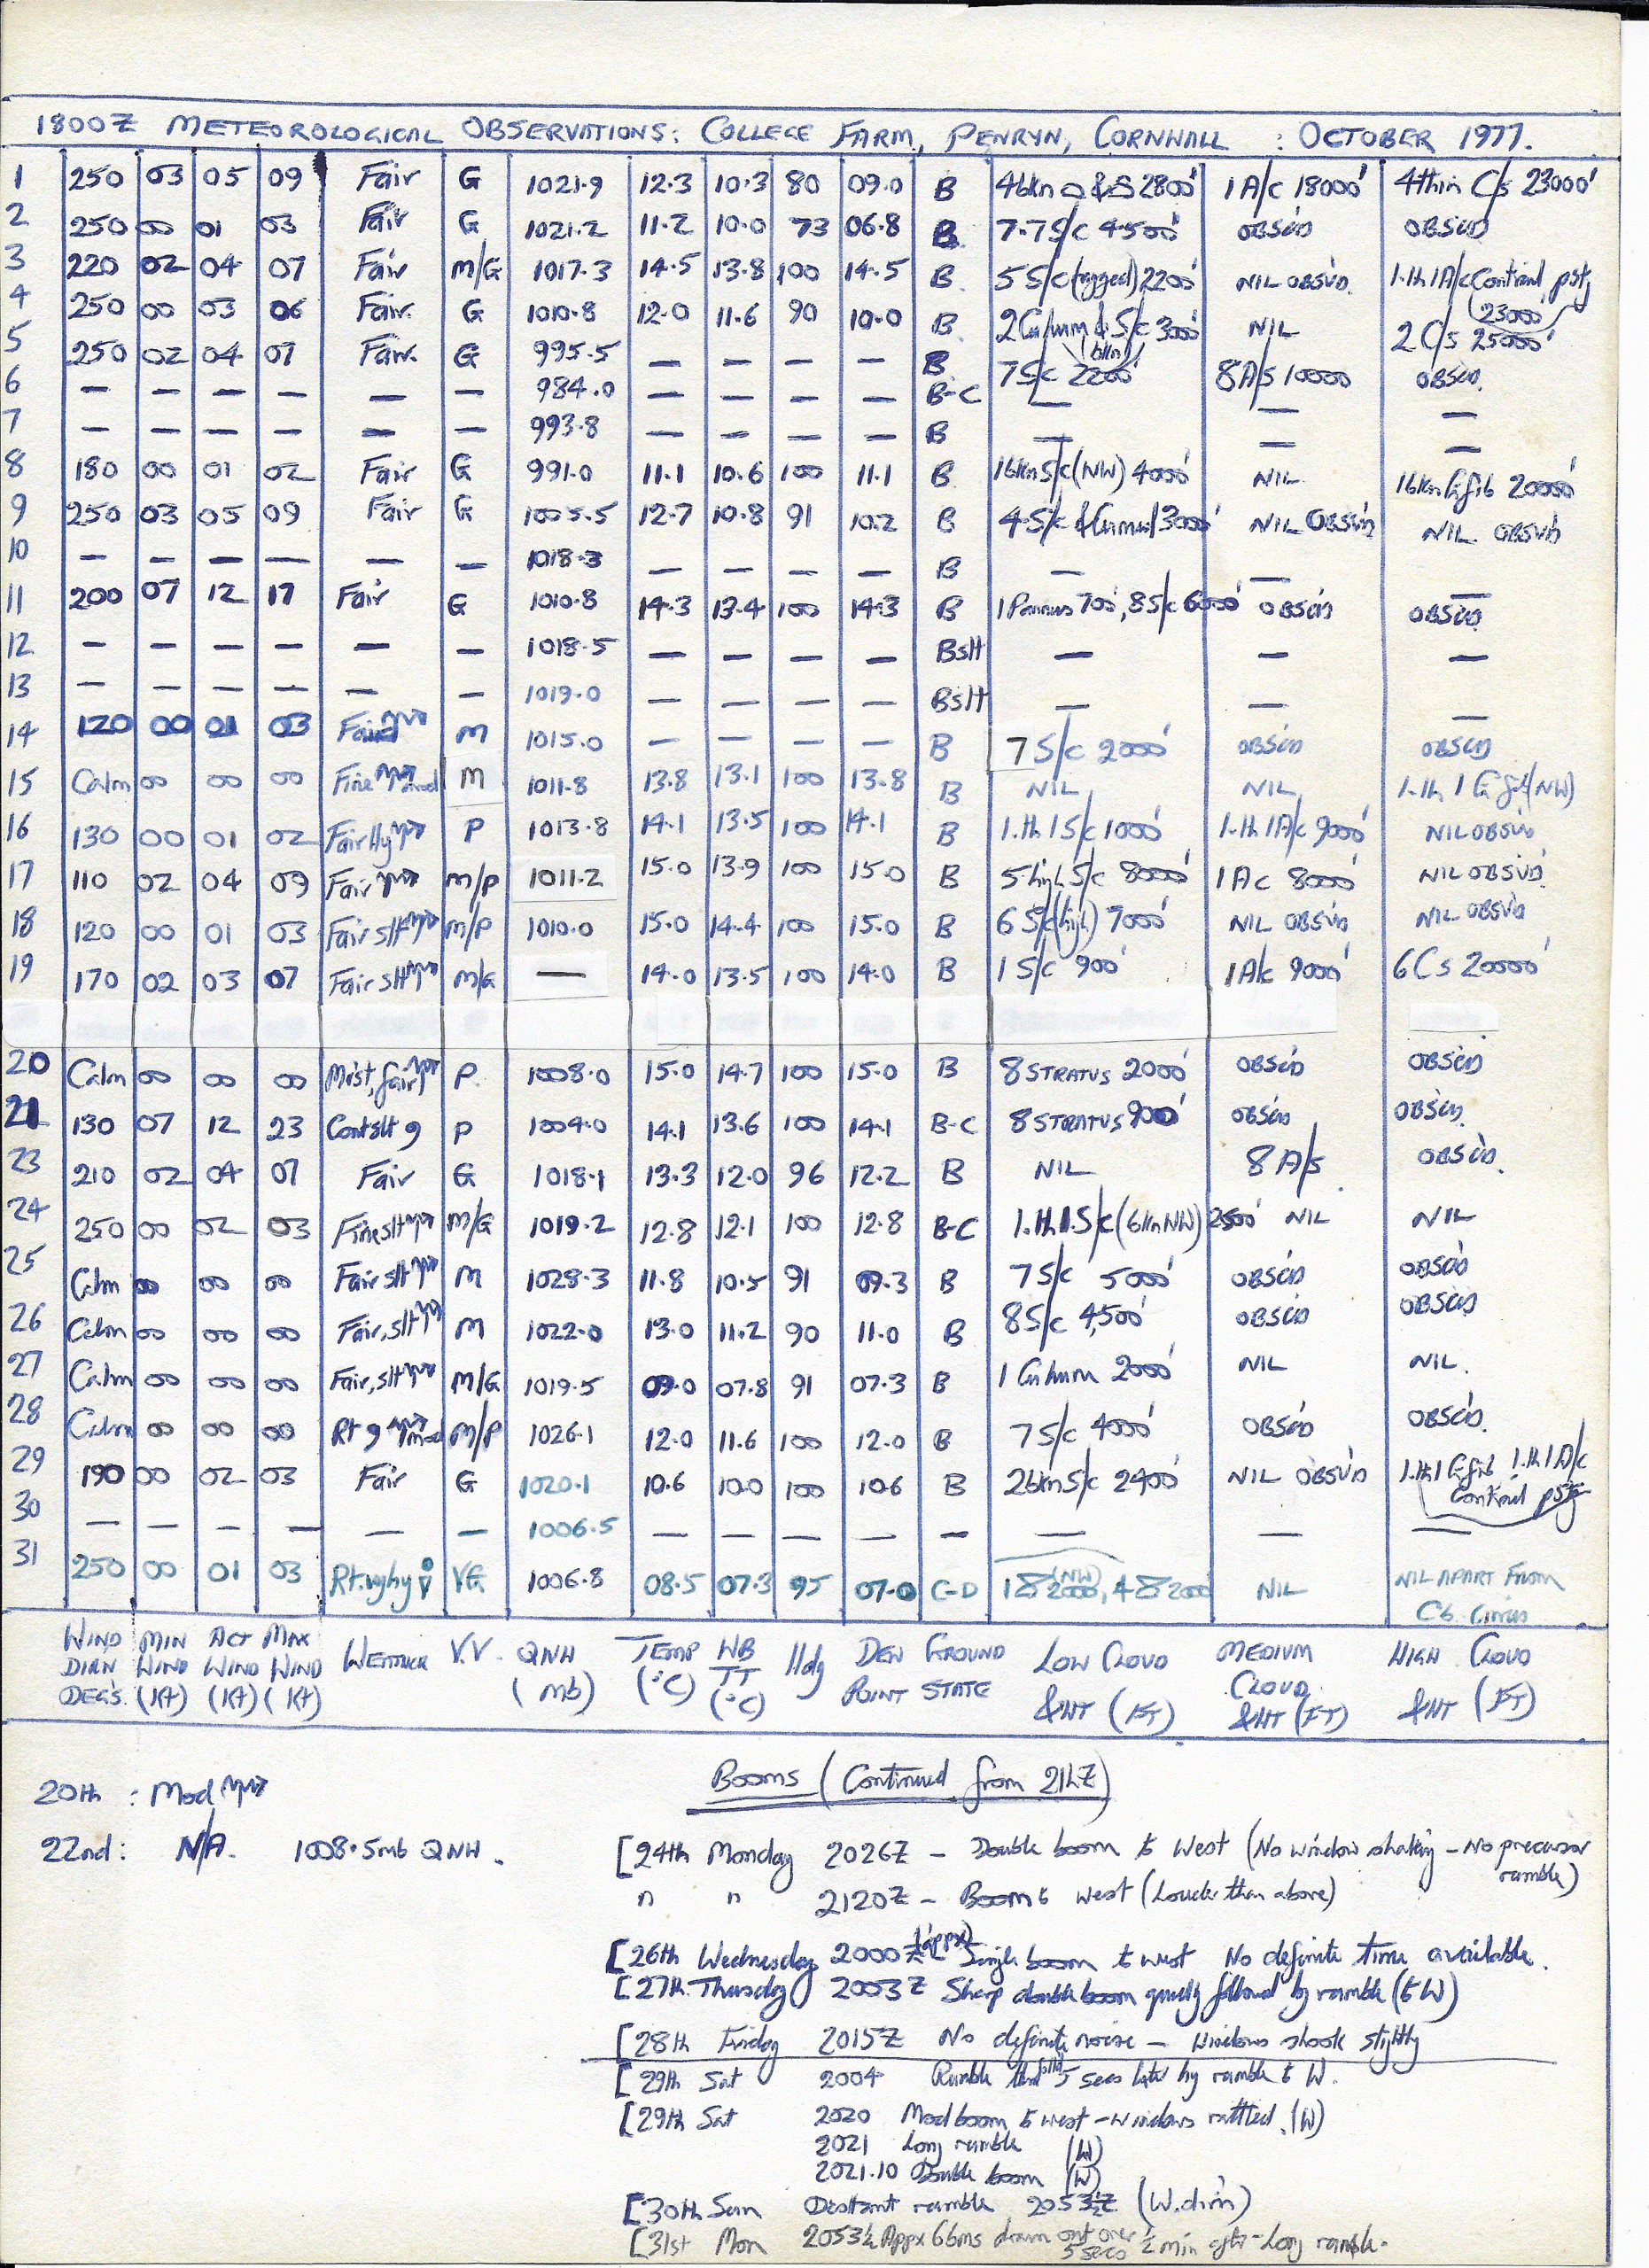 1800Z METEOROLOGICAL OBSERVATIONS: COLLEGE FARM, PENRYN, CORNWALL : OCTOBER 1977.
1 250 03 05 09 Fair G 1021.9 12.3 10.3 80 09.0 B 4bkn 2800' 1 A/c 18000' 4thin C/s 23000'
2 250 00 01 03 Fair G 1021.2 11.2 10.0 73 06.8 B 7.7S/c 4500' OBSC'D OBSC'D
3 220 02 04 07 Fair M/G 1017.3 14.5 13.8 100 14.5 B 5 S/c (ragged) 2200' NIL OBSVD. 1.th 1A/c Contrail pstg 23000'
4 250 00 03 06 Fair. G 1010.8 12.0 11.6 90 10.0 B 2 Cu hum & S/c 3000' NIL 2 C/s 25000'
5 250 02 04 07 Fair. G 995.5 — — — — B 7 S/c bkn 2200' 8 A/s 10000 OBSC'D.
6 — — — — — — 984.0 — — — — B-C — — —
7 — — — — — — 993.8 — — — — B — — —
8 180 00 01 02 Fair G 991.0 11.1 10.6 100 11.1 B 1bkn S/c (NW) 4000' NIL. 1bkn Ci fib 20000'
9 250 03 05 09 Fair G 1005.5 12.7 10.8 91 10.2 B 4 S/c & Cu med 3000' NIL OBSVD NIL OBSVD
10 — — — — — — 1018.3 — — — — B — — —
11 200 07 12 17 Fair G 1010.8 14.3 13.4 100 14.3 B 1 Pannus 700', 8 S/c 6000' OBSC'D OBSC'D
12 — — — — — — 1018.5 — — — — Bslt — — —
13 — — — — — — 1019.0 — — — — Bslt — — —
14 120 00 01 03 Fair M 1015.0 — — — — B 7 S/c 2000' OBSC'D OBSC'D
15 Calm 00 00 00 Fine mod M 1011.8 13.8 13.1 100 13.8 B NIL NIL 1.th 1 Ci fib (NW)
16 130 00 01 02 Fair Hy P 1013.8 14.1 13.5 100 14.1 B 1.th 1 S/c 1000' 1.th 1A/c 9000' NIL OBSVD
17 110 02 04 09 Fair M/P 1011.2 15.0 13.9 100 15.0 B 5 high S/c 8000' 1 Ac 8000' NIL OBSVD.
18 120 00 01 03 Fair slt M/P 1010.0 15.0 14.4 100 15.0 B 6 S/c (high) 7000' NIL OBSVD NIL OBSVD
19 170 02 03 07 Fair slt M/G — 14.0 13.5 100 14.0 B 1 S/c 900' 1 A/c 9000' 6 Cs 20000'
20 Calm 00 00 00 Mist, fair P. 1008.0 15.0 14.7 100 15.0 B 8 STRATUS 2000' OBSC'D OBSC'D
21 130 07 12 23 Cont slt 9 P 1004.0 14.1 13.6 100 14.1 B-C 8 STRATUS 900' OBSC'D OBSC'D.
23 210 02 04 07 Fair G 1018.1 13.3 12.0 96 12.2 B NIL 8 A/s OBSC'D.
24 250 00 02 03 Fine slt M/G 1019.2 12.8 12.1 100 12.8 B-C 1.th 1.S/c (6km NW) 2500' NIL NIL
25 Calm 00 00 00 Fair slt M 1028.3 11.8 10.5 91 09.3 B 7 S/c 5000' OBSC'D OBSC'D
26 Calm 00 00 00 Fair, slt M 1022.0 13.0 11.2 90 11.0 B 8 S/c 4,500' OBSC'D OBSC'D
27 Calm 00 00 00 Fair, slt M/G 1019.5 09.0 07.8 91 07.3 B 1 Cu hum 2000' NIL NIL.
28 Calm 00 00 00 Rt 9 mod M/P 1026.1 12.0 11.6 100 12.0 B 7 S/c 4000' OBSC'D OBSC'D.
29 190 00 02 03 Fair G 1020.1 10.6 10.0 100 10.6 B 2bkn S/c 2400' NIL OBSVD 1.th 1 Ci fib 1.th 1 A/c Contrail pstg
30 — — — — — — 1006.5 — — — — — — — —
31 250 00 01 03 Rt. VG 1006.8 08.5 07.3 95 07.0 C-D 18 2000' (NW), 4 8 200 NIL NIL APART FROM Cb Cirrus
WIND DIR'N DEGS. MIN WIND (Kt) ACT WIND (Kt) MAX WIND (Kt) WEATHER V.V. QNH (mb) TEMP (°C) WB TT (°C) Hdy DEW POINT GROUND STATE LOW CLOUD &HT (FT) MEDIUM CLOUD &HT (FT) HIGH CLOUD &HT (FT)
Booms (Continued from 21hZ)
20th : Mod
22nd : N/A. 1008.5mb QNH.
[24th Monday 2026Z – Double boom to West (No window shaking – No precursor rumble)
" " 2120Z – Boom to west (Louder than above)
[26th Wednesday 2000Z (appx) Single boom to west No definite time available.
[27th Thursday 2003Z Sharp double boom quickly followed by rumble (to W)
[28th Friday 2015Z No definite noise – Windows shook slightly
[29th Sat 2004 Rumble folld 5 secs later by rumble to W.
[29th Sat 2020 Mod boom to west – windows rattled. (W)
2021 Long rumble (W)
2021.10 Double boom (W)
[30th Sun Distant rumble 2053½Z (W. dir'n)
[31st Mon 2053½ Appx 6 bms drawn out over 5 secs ½ min aftr – Long rumble.